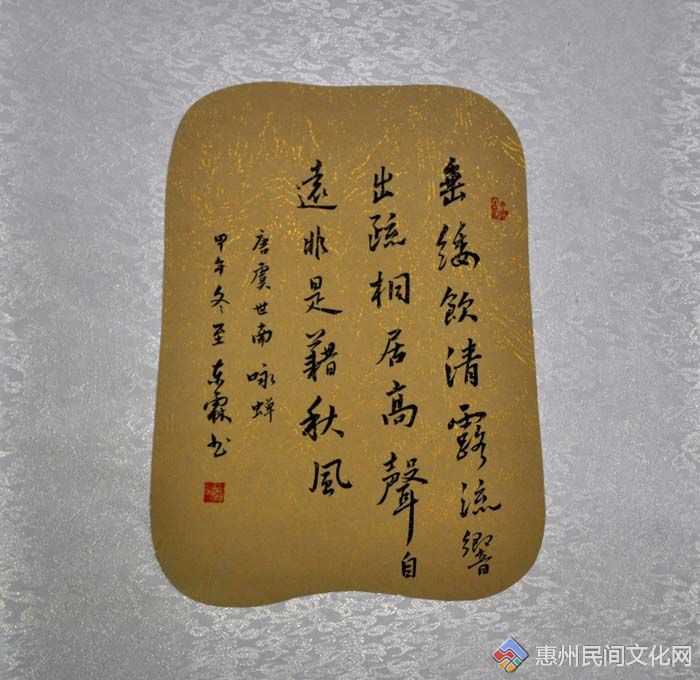 垂緌飲清露流響
出疏桐居高聲自
遠非是藉秋風
唐虞世南咏蝉
甲午冬至东霖书
惠州民间文化网